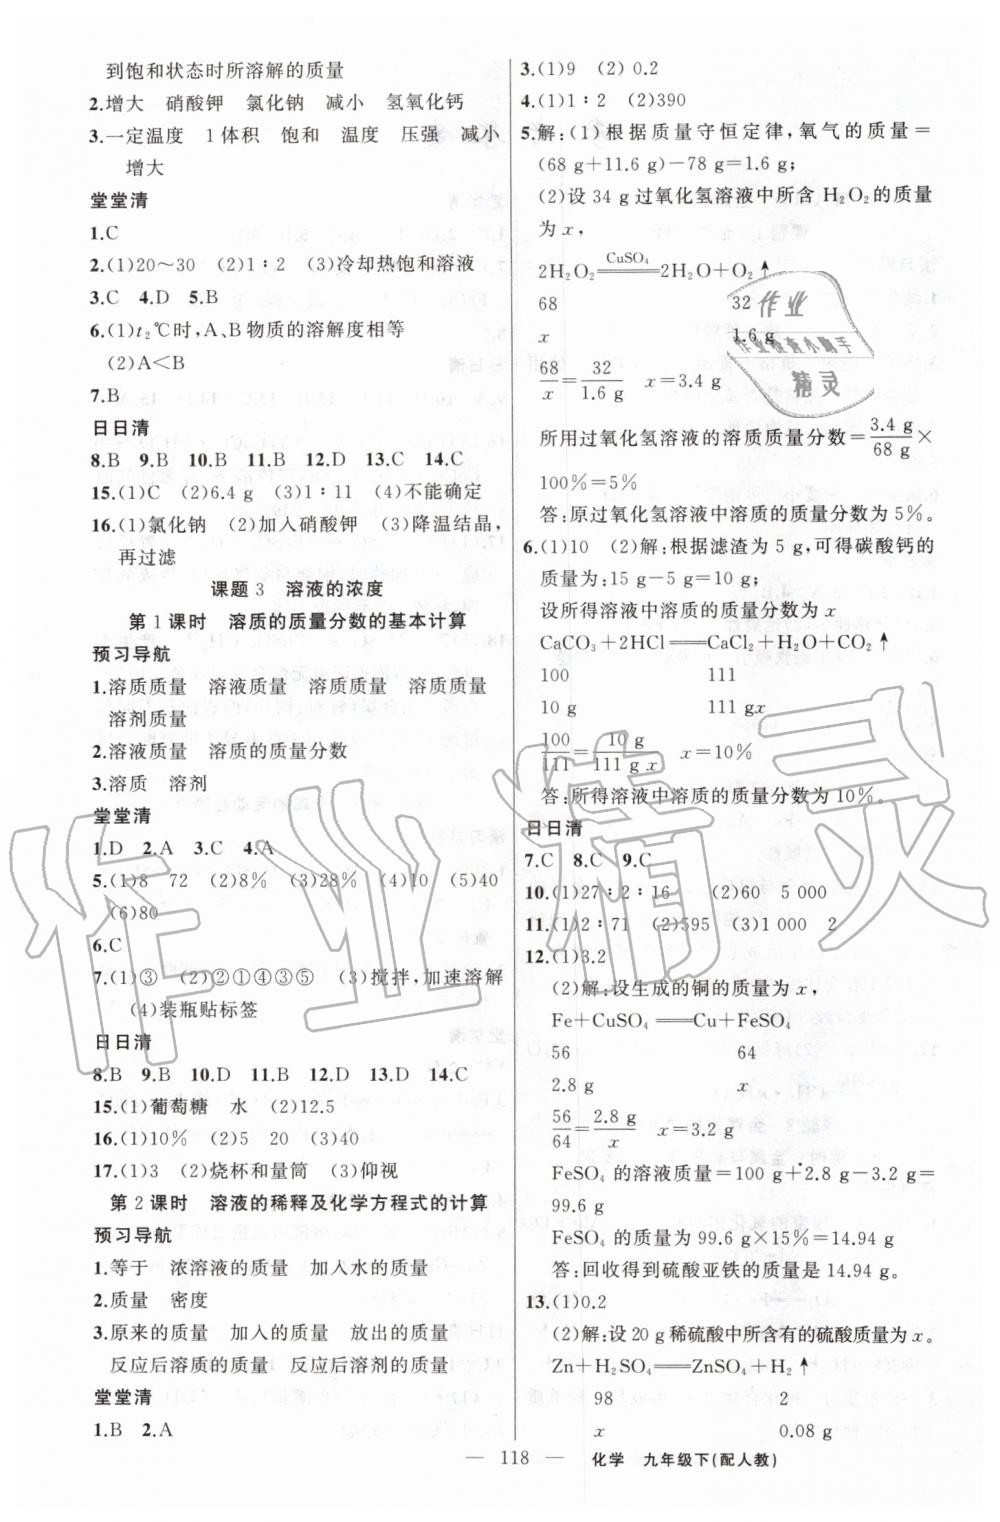 到饱和状态时所溶解的质量
2.增大　硝酸钾　氯化钠　减小　氢氧化钙
3.一定温度　1体积　饱和　温度　压强　减小
增大
堂堂清
1.C
2.(1)20～30　(2)1∶2　(3)冷却热饱和溶液
3.C　4.D　5.B
6.(1)t₂℃时,A、B物质的溶解度相等
(2)A＜B
7.B
日日清
8.B　9.B　10.B　11.B　12.D　13.C　14.C
15.(1)C　(2)6.4 g　(3)1∶11　(4)不能确定
16.(1)氯化钠　(2)加入硝酸钾　(3)降温结晶,
再过滤
课题3　溶液的浓度
第1课时　溶质的质量分数的基本计算
预习导航
1.溶质质量　溶液质量　溶质质量　溶质质量
溶剂质量
2.溶液质量　溶质的质量分数
3.溶质　溶剂
堂堂清
1.D　2.A　3.C　4.A
5.(1)8　72　(2)8%　(3)28%　(4)10　(5)40
(6)80
6.C
7.(1)③　(2)②①④③⑤　(3)搅拌,加速溶解
(4)装瓶贴标签
日日清
8.B　9.B　10.D　11.B　12.D　13.D　14.C
15.(1)葡萄糖　水　(2)12.5
16.(1)10%　(2)5　20　(3)40
17.(1)3　(2)烧杯和量筒　(3)仰视
第2课时　溶液的稀释及化学方程式的计算
预习导航
1.等于　浓溶液的质量　加入水的质量
2.质量　密度
3.原来的质量　加入的质量　放出的质量
反应后溶质的质量　反应后溶剂的质量
堂堂清
1.B　2.A
3.(1)9　(2)0.2
4.(1)1∶2　(2)390
5.解:(1)根据质量守恒定律,氧气的质量＝
(68 g+11.6 g)－78 g＝1.6 g;
(2)设34 g过氧化氢溶液中所含H₂O₂的质量
为x,
CuSO₄
2H₂O₂═══2H₂O+O₂↑
68　32
x　1.6 g
68/x＝32/1.6 g　x＝3.4 g
所用过氧化氢溶液的溶质质量分数＝3.4 g/68 g×
100%＝5%
答:原过氧化氢溶液中溶质的质量分数为5%。
6.(1)10　(2)解:根据滤渣为5 g,可得碳酸钙的
质量为:15 g－5 g＝10 g;
设所得溶液中溶质的质量分数为x
CaCO₃+2HCl═══CaCl₂+H₂O+CO₂↑
100　111
10 g　111 gx
100/111＝10 g/111 g x　x＝10%
答:所得溶液中溶质的质量分数为10%。
日日清
7.C　8.C　9.C
10.(1)27∶2∶16　(2)60　5 000
11.(1)2∶71　(2)595　(3)1 000　2
12.(1)3.2
(2)解:设生成的铜的质量为x,
Fe+CuSO₄═══Cu+FeSO₄
56　64
2.8 g　x
56/64＝2.8 g/x　x＝3.2 g
FeSO₄的溶液质量＝100 g+2.8 g－3.2 g＝
99.6 g
FeSO₄的质量为99.6 g×15%＝14.94 g
答:回收得到硫酸亚铁的质量是14.94 g。
13.(1)0.2
(2)解:设20 g稀硫酸中所含有的硫酸质量为x。
Zn+H₂SO₄═══ZnSO₄+H₂↑
98　2
x　0.08 g
— 118 —　化学　九年级下(配人教)
作业
作业检查小助手
精灵
作业精灵